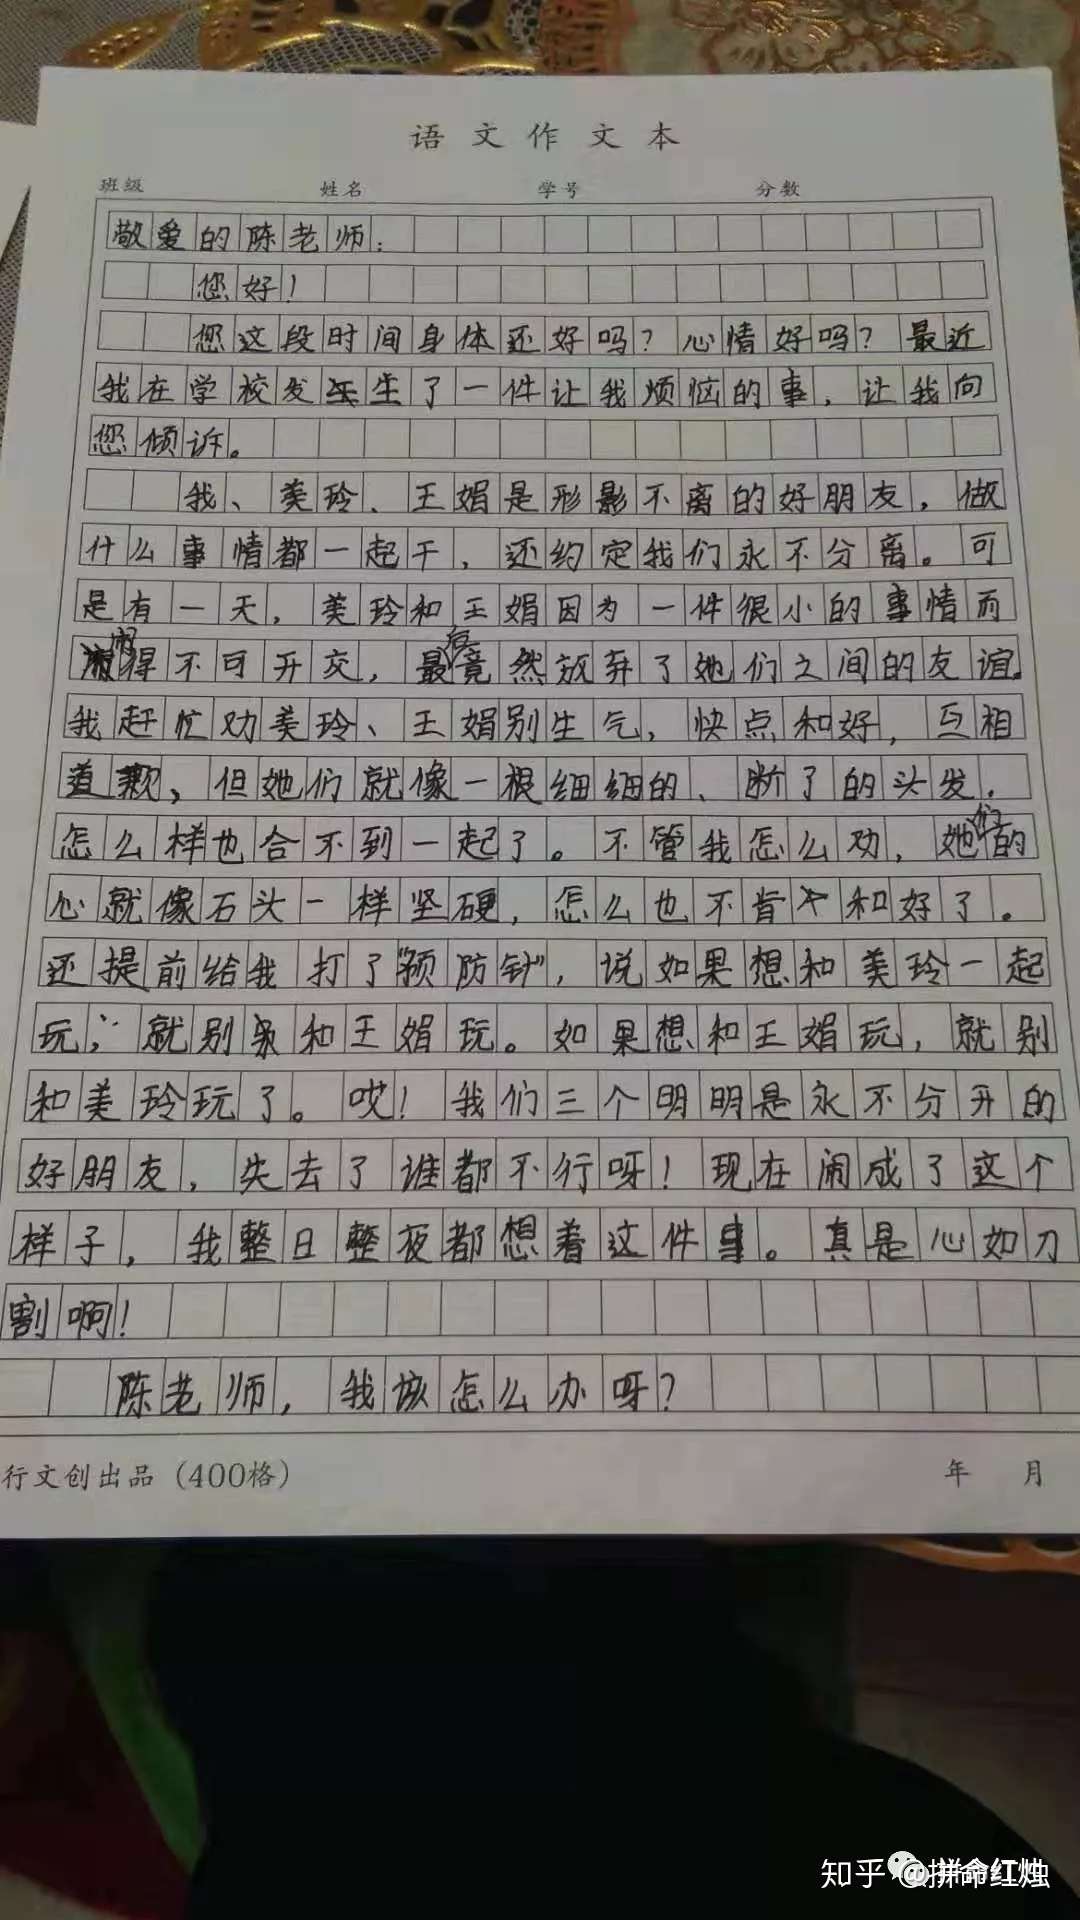 语文作文本
班级 姓名 学号 分数
敬爱的陈老师：
您好！
您这段时间身体还好吗？心情好吗？最近
我在学校发生了一件让我烦恼的事，让我向
您倾诉。
我、美玲、王娟是形影不离的好朋友，做
什么事情都一起干，还约定我们永不分离。可
是有一天，美玲和王娟因为一件很小的事情而
闹得不可开交，最后竟然放弃了她们之间的友谊。
我赶忙劝美玲、王娟别生气，快点和好，互相
道歉，但她们就像一根细细的、断了的头发，
怎么样也合不到一起了。不管我怎么劝，她们的
心就像石头一样坚硬，怎么也不肯和好了。
还提前给我打了“预防针”，说如果想和美玲一起
玩，就别和王娟玩。如果想和王娟玩，就别
和美玲玩了。哎！我们三个明明是永不分开的
好朋友，失去了谁都不行呀！现在闹成了这个
样子，我整日整夜都想着这件事。真是心如刀
割啊！
陈老师，我该怎么办呀？
行文创出品（400格） 年 月
知乎 @拼命红烛